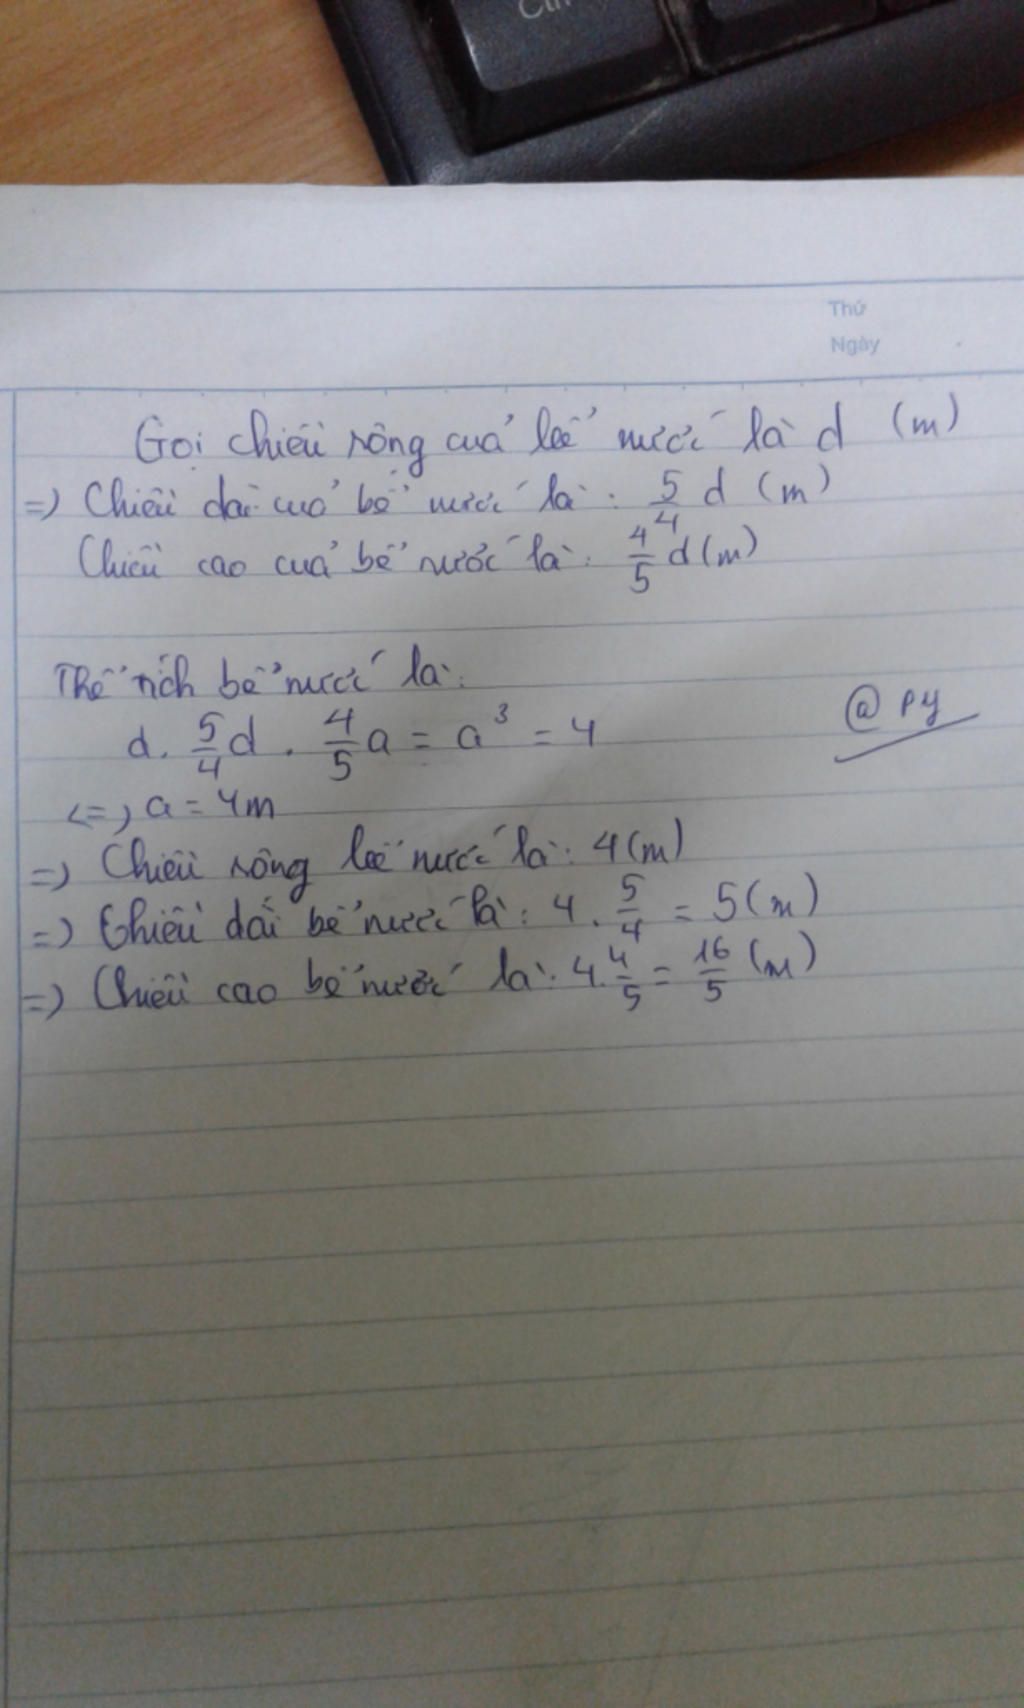 Ctrl
Thứ
Ngày
Gọi chiều rộng của bể nước là a (m)
=) Chiều dài của bể nước là: 5/4 a (m)
Chiều cao của bể nước là: 4/5 a (m)
Thể tích bể nước là:
a. 5/4 a . 4/5 a = a³ = 4
@ PY
<=> a = 4m
=) Chiều rộng bể nước là: 4 (m)
=) Chiều dài bể nước là: 4 . 5/4 = 5 (m)
=) Chiều cao bể nước là: 4. 4/5 = 16/5 (m)